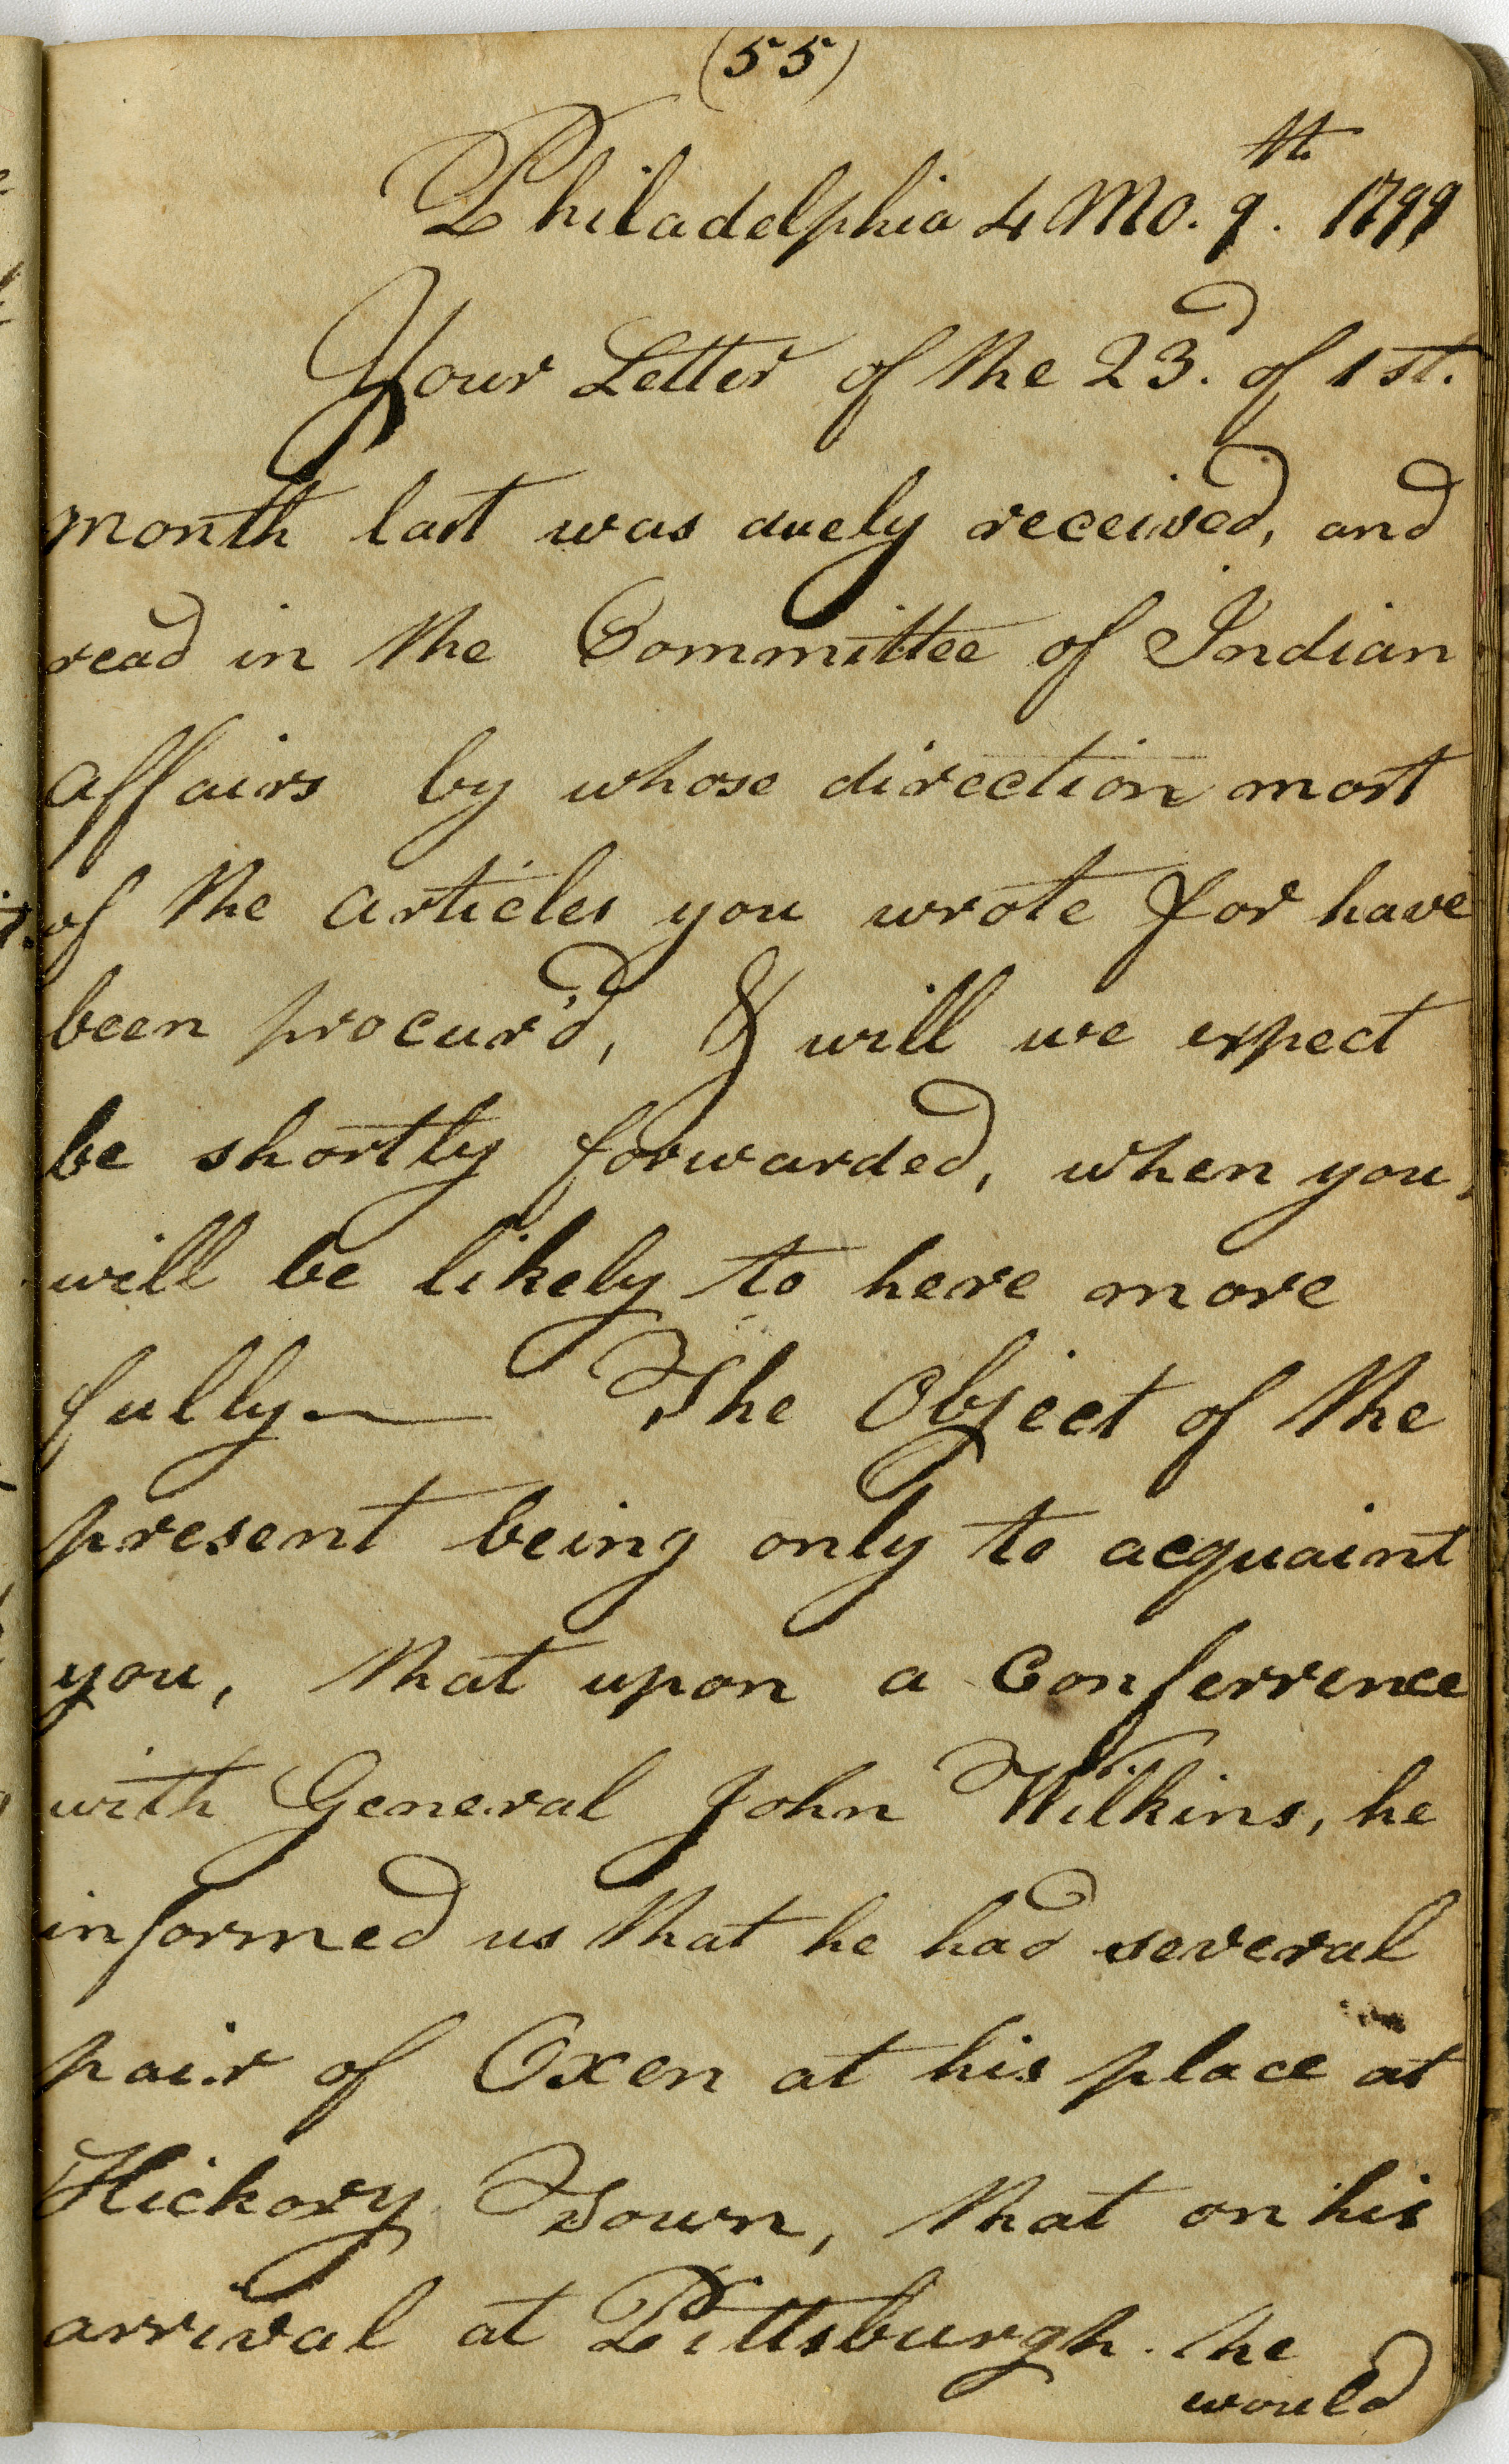 (55)
Philadelphia 4 Mo. 9th. 1799
Your Letter of the 23d. of 1st.
month last was duely received, and
read in the Committee of Indian
affairs by whose direction most
of the articles you wrote for have
been procur'd, & will we expect
be shortly forwarded, when you,
will be likely to here more
fully— The Object of the
present being only to acquaint
you, that upon a Conferrence
with General John Wilkins, he
informed us that he had several
pair of Oxen at his place at
Hickory Town, that on his
arrival at Pittsburgh. he
would